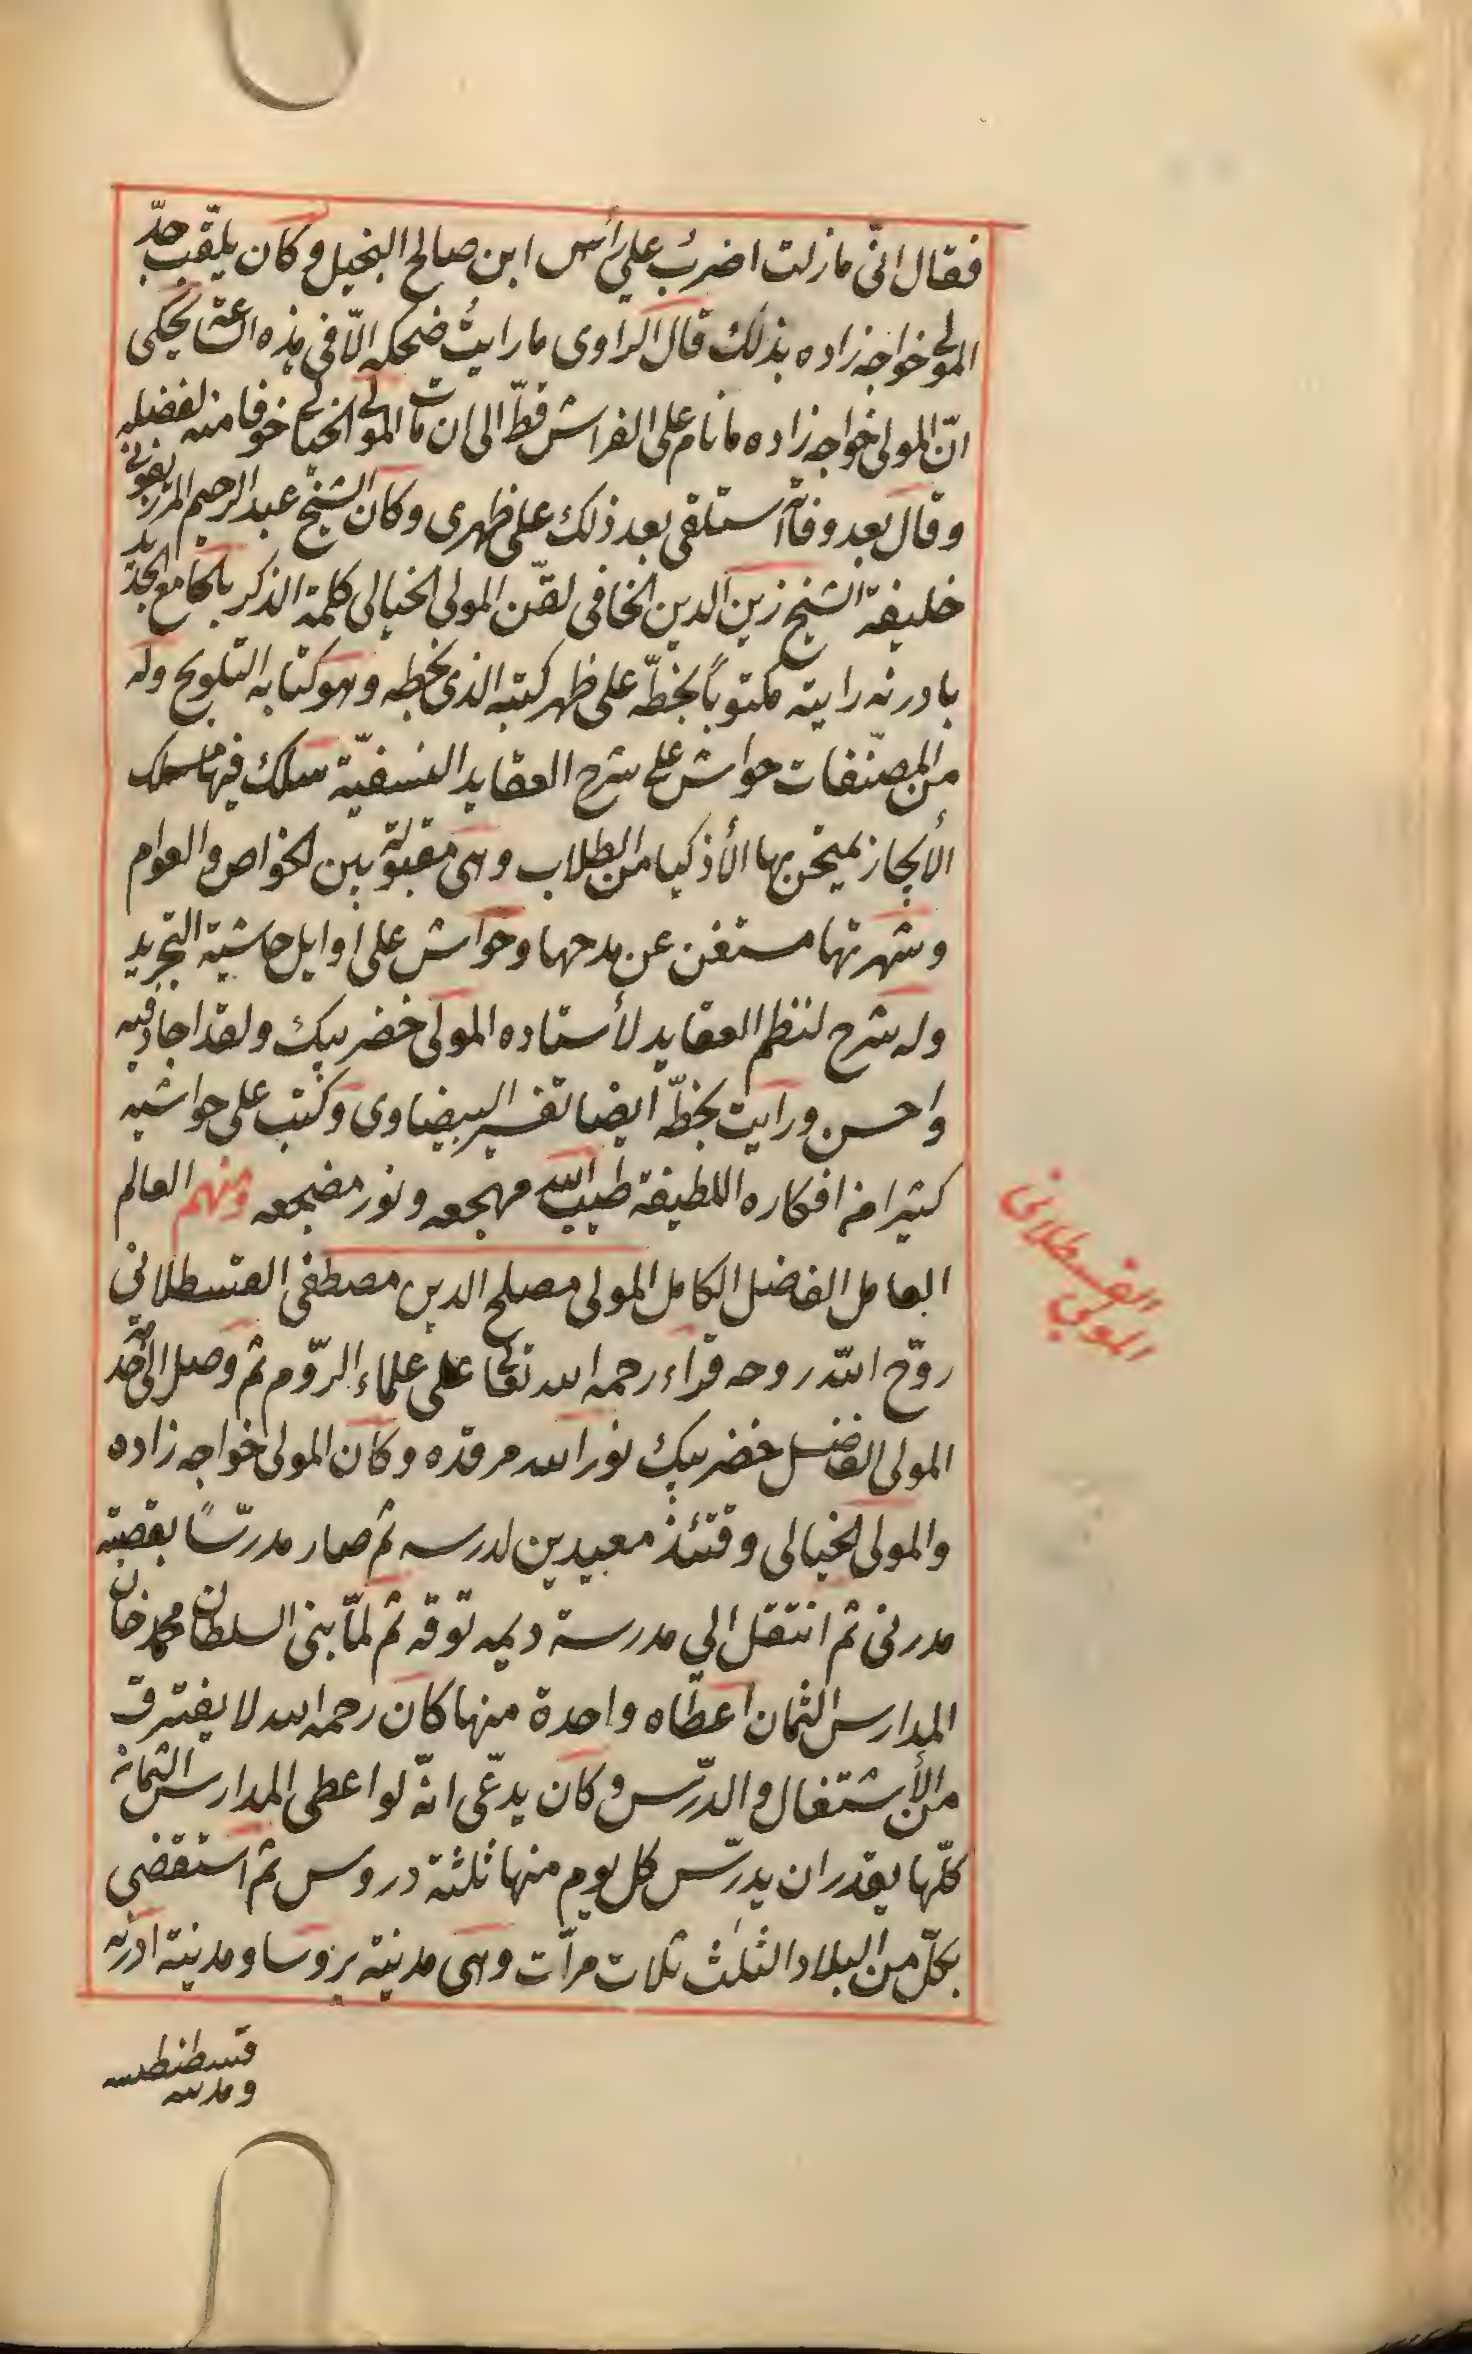 فقال انّى مازلت اضربُ على رأس ابن صالح البخيل وكان يلقّب جدّ
المولى خواجه زاده بذلك قال الراوى ما رايتُ ضحكه الّا فى هذه الساعة يحكى
انّ المولى خواجه زاده ما نام على الفراش قطّ الى ان مات المولى الخيالى خوفا منه لفضله
وقال بعد وفاته استلقى بعد ذلك على ظهرى وكان الشيخ عبد الرحيم المرزيفونى
خليفة الشيخ زين الدين الخافى لقّن المولى الخيالى كلمة الذكر بالجامع الجديد
بادرنه رايته مكتوباً بخطّه على ظهر كتبه الذى بخطه وهو كتابه التلويح وله
من المصنّفات حواش على شرح العقايد النسفيّة سلك فيها مسلك
الأيجاز يمتحن بها الأذكيا من الطلاب وهى مقبولة بين الخواص والعوام
وشهرتها مستغن عن مدحها وحواش على اوايل حاشية التجريد
وله شرح لنظم العقايد لأستاده المولى خضر بيك ولقد اجاد فيه
واحسن ورايت بخطّه ايضا تفسير البيضاوى وكتب على حواشيه
كثيرا من افكاره اللطيفة طيب الله مهجعه ونور مضجعه ومنهم العالم
العامل الفاضل الكامل المولى مصلح الدين مصطفى القسطلانى
روّح الله روحه قراء رحمه الله تعالى على علماء الرّوم ثم وصل الى خدمة
المولى الفاضل خضر بيك نور الله مرقده وكان المولى خواجه زاده
والمولى الخيالى وقتئذ معيدين لدرسه ثم صار مدرّسًا بقصبة
مدرنى ثم انتقل الى مدرسة ديمه توقه ثم لمّا بنى السلطان محمد خان
المدارس الثمان اعطاه واحدة منها كان رحمه الله لا يفترق
من الأشتغال والدّرس وكان يدّعى انّه لو اعطى المدارس الثمانه
كلّها يقدر ان يدرّس كل يوم منها ثلثة دروس ثم استقضى
بكلّ من البلاد الثلٰث ثلاث مرّات وهى مدينة بروسا ومدينة ادرنه
ومدينه
قسطنطنيه
المولى
القسطلانى